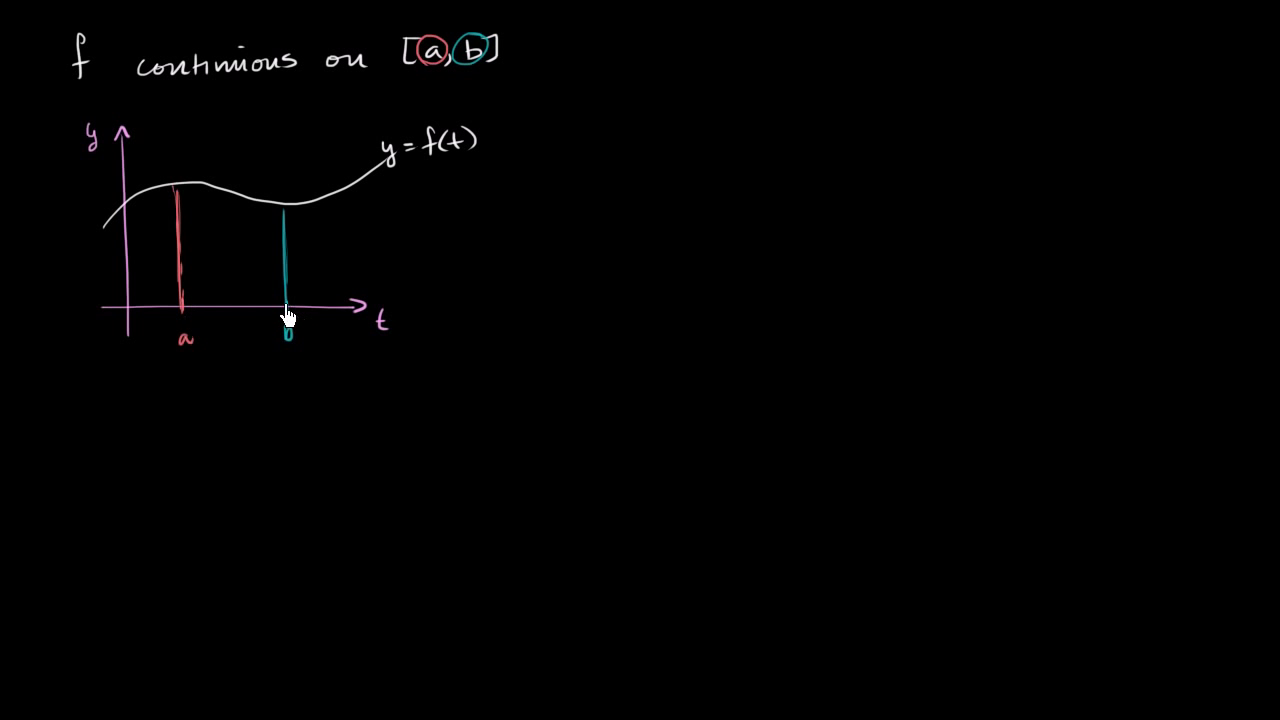 f continious on [a, b]
y
y = f(t)
t
a
b